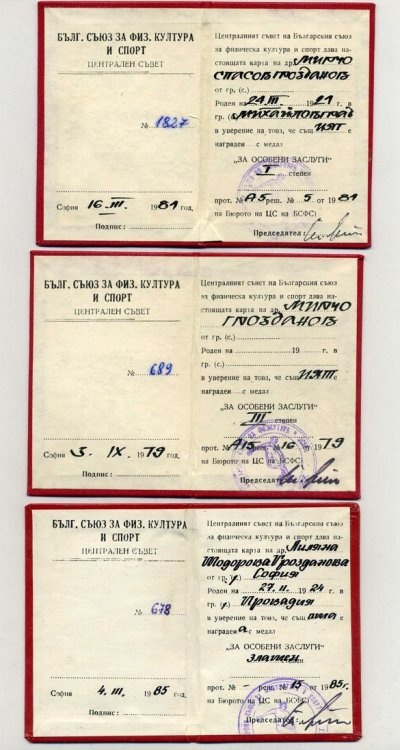 БЪЛГ. СЪЮЗ ЗА ФИЗ. КУЛТУРА
И СПОРТ
ЦЕНТРАЛЕН СЪВЕТ
№ 1827
София 16. III. 1981 год.
Подпис:
Централният съвет на Българския съюз
за физическа култура и спорт дава на-
стоящата карта на др. МИНЧО
СПАСОВ ГРОЗДАНОВ
от гр. (с.)
Роден на 24. III. 1921 г. в
гр. (с.) МИХАЙЛОВГРАД
в уверение на това, че същ ИЯТ е
награден с медал
„ЗА ОСОБЕНИ ЗАСЛУГИ“
I степен
прот. № А5 реш. № 5 от 1981
на Бюрото на ЦС на БСФС)
Председател:
БЪЛГ. СЪЮЗ ЗА ФИЗ. КУЛТУРА
И СПОРТ
ЦЕНТРАЛЕН СЪВЕТ
№ 689
София 3. IX. 1979 год.
Подпис:
Централният съвет на Българския съюз
за физическа култура и спорт дава на-
стоящата карта на др. МИНЧО
ГРОЗДАНОВ
от гр. (с.)
Роден на 19 г. в
гр. (с.)
в уверение на това, че същ ИЯТ е
награден с медал
„ЗА ОСОБЕНИ ЗАСЛУГИ“
III степен
прот. № А15 реш. № 16 от 1979
на Бюрото на ЦС на БСФС)
Председател:
БЪЛГ. СЪЮЗ ЗА ФИЗ. КУЛТУРА
И СПОРТ
ЦЕНТРАЛЕН СЪВЕТ
№ 678
София 4. III. 1985 год.
Подпис:
Централният съвет на Българския съюз
за физическа култура и спорт дава на-
стоящата карта на др. Лиляна
Тодорова Грозданова
от гр. София
Роден на 27. II. 1924 г. в
гр. Провадия
в уверение на това, че същ ата е
награден а с медал
„ЗА ОСОБЕНИ ЗАСЛУГИ“
Златен степен
прот. № – реш. № 15 от 1985 г.
на Бюрото на ЦС на БСФС)
Председател: